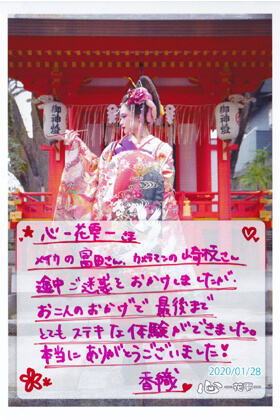 御神燈
御神燈
心-花雫-様
メイクの冨田さん、カメラマンの崎枝さん
途中ご迷惑をおかけしましたが、
お二人のおかげで最後まで
とてもステキな体験ができました。
本当にありがとうございました!
2020/01/28
香織
心-花雫-